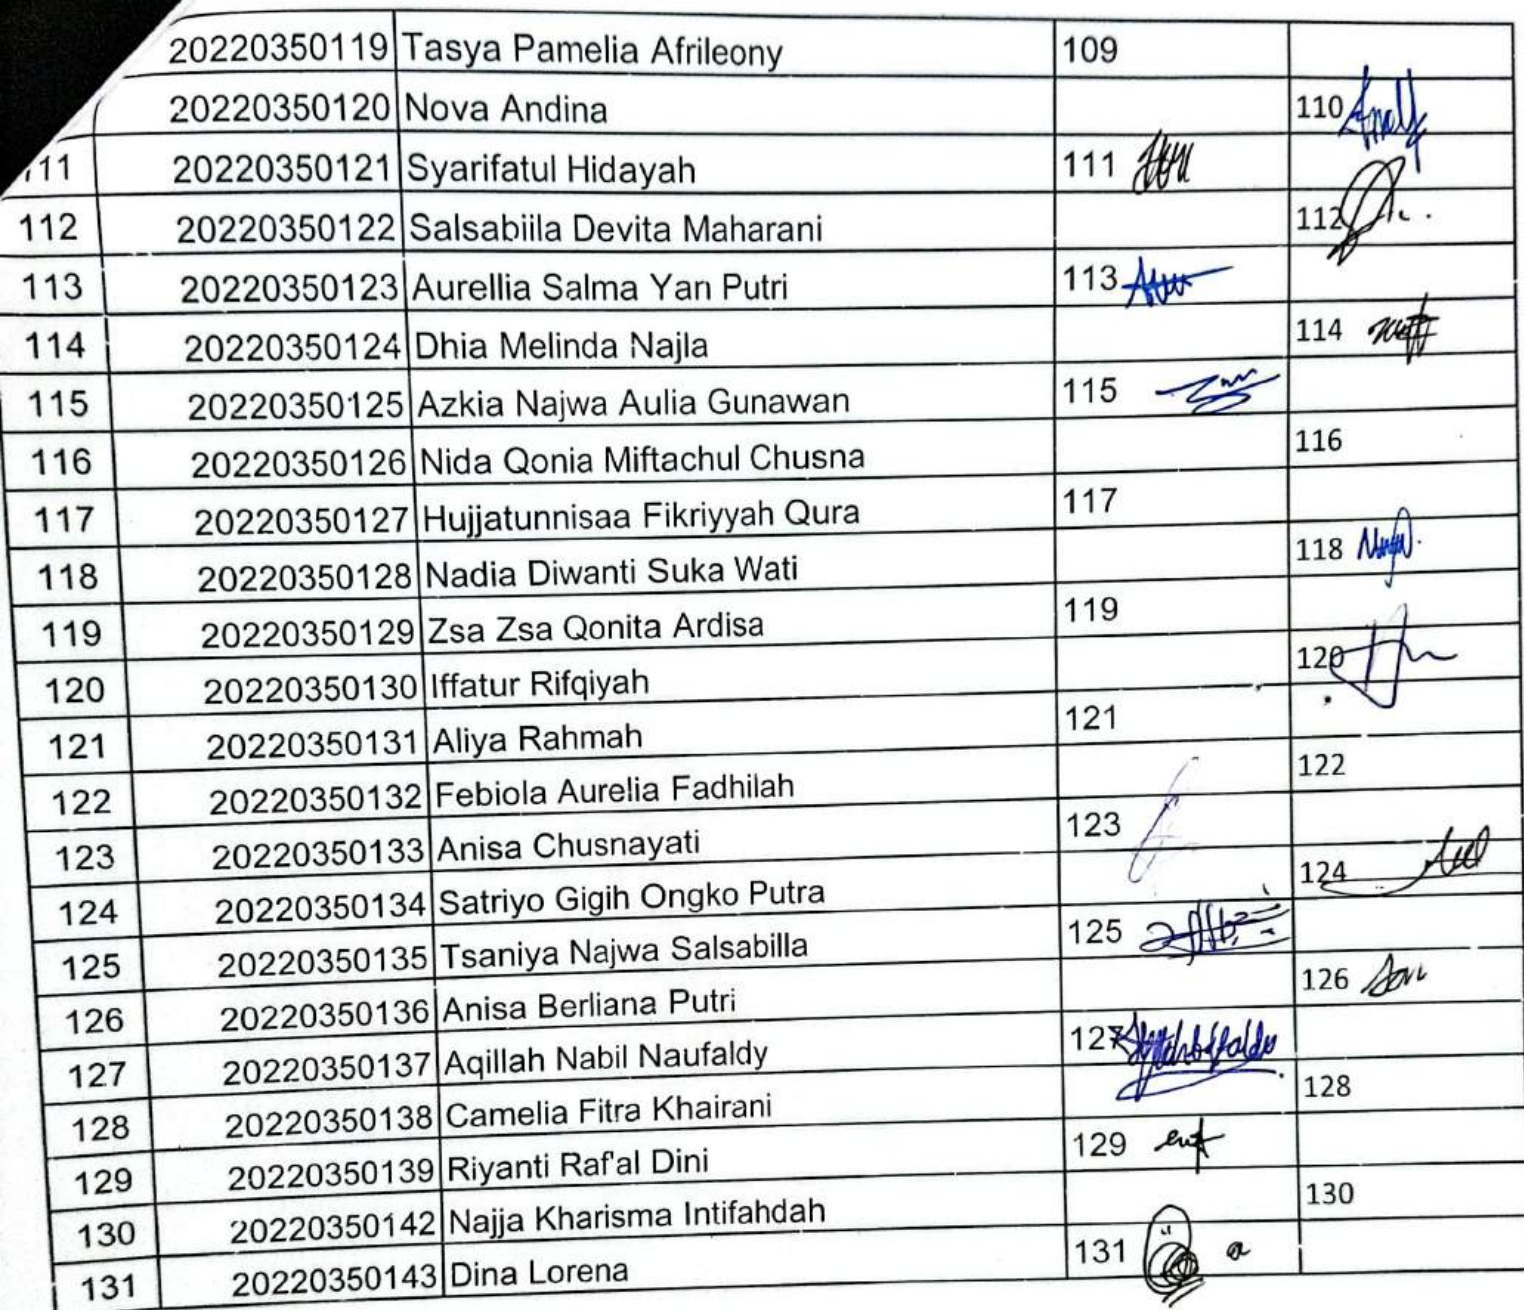 20220350119 Tasya Pamelia Afrileony 109
20220350120 Nova Andina 110
111 20220350121 Syarifatul Hidayah 111
112 20220350122 Salsabiila Devita Maharani 112
113 20220350123 Aurellia Salma Yan Putri 113
114 20220350124 Dhia Melinda Najla 114
115 20220350125 Azkia Najwa Aulia Gunawan 115
116 20220350126 Nida Qonia Miftachul Chusna 116
117 20220350127 Hujjatunnisaa Fikriyyah Qura 117
118 20220350128 Nadia Diwanti Suka Wati 118
119 20220350129 Zsa Zsa Qonita Ardisa 119
120 20220350130 Iffatur Rifqiyah 120
121 20220350131 Aliya Rahmah 121
122 20220350132 Febiola Aurelia Fadhilah 122
123 20220350133 Anisa Chusnayati 123
124 20220350134 Satriyo Gigih Ongko Putra 124
125 20220350135 Tsaniya Najwa Salsabilla 125
126 20220350136 Anisa Berliana Putri 126
127 20220350137 Aqillah Nabil Naufaldy 127
128 20220350138 Camelia Fitra Khairani 128
129 20220350139 Riyanti Raf'al Dini 129
130 20220350142 Najja Kharisma Intifahdah 130
131 20220350143 Dina Lorena 131